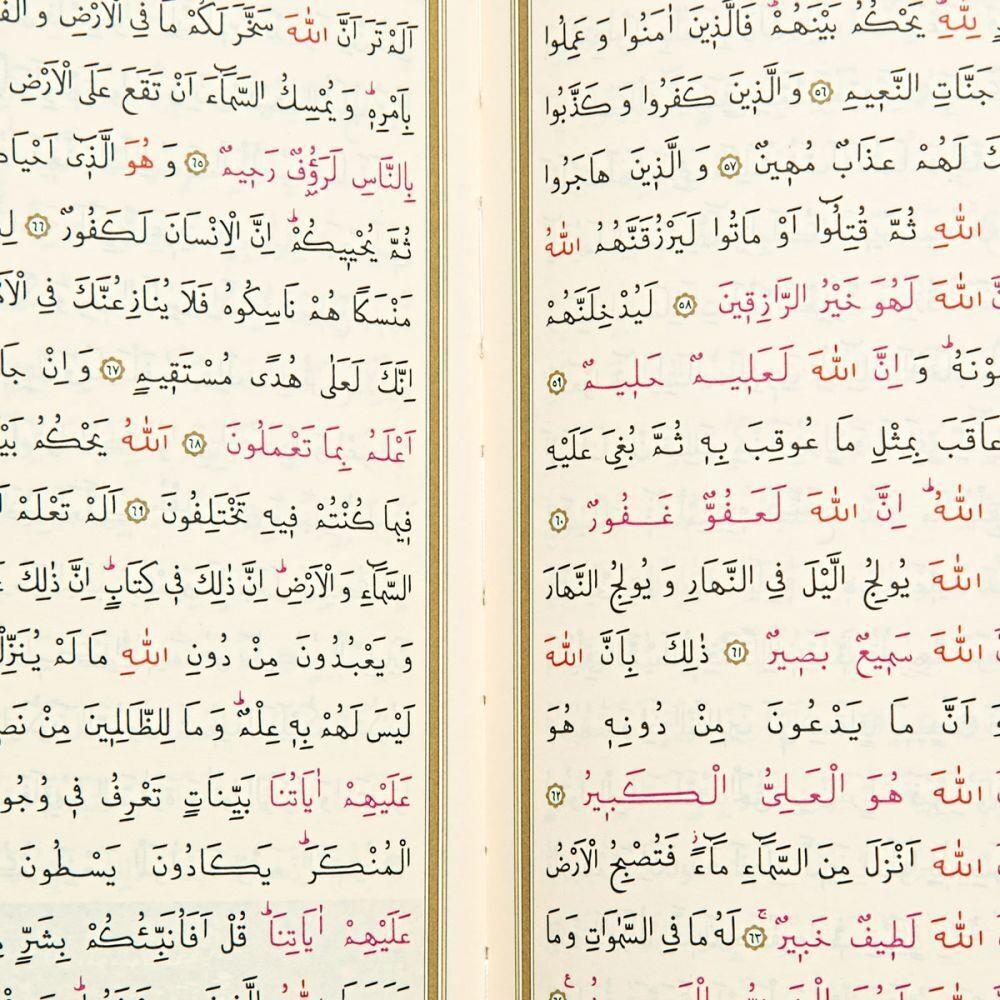 لِلّٰهِ يَحْكُمُ بَيْنَهُمْۜ فَالَّذ۪ينَ اٰمَنُوا وَ عَمِلُوا
جَنَّاتِ النَّع۪يمِ ﴿٥٦﴾ وَ الَّذ۪ينَ كَفَرُوا وَ كَذَّبُوا
لَهُمْ عَذَابٌ مُه۪ينٌ ﴿٥٧﴾ وَ الَّذ۪ينَ هَاجَرُوا
اللّٰهِ ثُمَّ قُتِلُٓوا اَوْ مَاتُوا لَيَرْزُقَنَّهُمُ اللّٰهُ
اللّٰهَ لَهُوَ خَيْرُ الرَّازِق۪ينَ ﴿٥٨﴾ لَيُدْخِلَنَّهُمْ
وْنَهُۜ وَ اِنَّ اللّٰهَ لَعَل۪يمٌ حَل۪يمٌ ﴿٥٩﴾
عَاقَبَ بِمِثْلِ مَا عُوقِبَ بِه۪ ثُمَّ بُغِيَ عَلَيْهِ
اللّٰهُۜ اِنَّ اللّٰهَ لَعَفُوٌّ غَفُورٌ ﴿٦٠﴾
اللّٰهَ يُولِجُ الَّيْلَ فِي النَّهَارِ وَ يُولِجُ النَّهَارَ
اللّٰهَ سَم۪يعٌ بَص۪يرٌ ﴿٦١﴾ ذٰلِكَ بِاَنَّ اللّٰهَ
وَ اَنَّ مَا يَدْعُونَ مِنْ دُونِه۪ هُوَ
اللّٰهَ هُوَ الْعَلِيُّ الْكَب۪يرُ ﴿٦٢﴾
اللّٰهَ اَنْزَلَ مِنَ السَّمَٓاءِ مَٓاءًۘ فَتُصْبِحُ الْاَرْضُ
اللّٰهَ لَط۪يفٌ خَب۪يرٌۚ ﴿٦٣﴾ لَهُ مَا فِي السَّمٰوَاتِ وَ مَا
اَلَمْ تَرَ اَنَّ اللّٰهَ سَخَّرَ لَكُمْ مَا فِي الْاَرْضِ وَ
بِاَمْرِه۪ۜ وَ يُمْسِكُ السَّمَٓاءَ اَنْ تَقَعَ عَلَى الْاَرْضِ
بِالنَّاسِ لَرَؤُ۫فٌ رَح۪يمٌ ﴿٦٥﴾ وَ هُوَ الَّذ۪ٓي اَحْيَا
ثُمَّ يُحْي۪يكُمْۜ اِنَّ الْاِنْسَانَ لَكَفُورٌ ﴿٦٦﴾
مَنْسَكًا هُمْ نَاسِكُوهُ فَلَا يُنَازِعُنَّكَ فِي
اِنَّكَ لَعَلٰى هُدًى مُسْتَق۪يمٍ ﴿٦٧﴾ وَ اِنْ
اَعْلَمُ بِمَا تَعْمَلُونَ ﴿٦٨﴾ اَللّٰهُ يَحْكُمُ
ف۪يمَا كُنْتُمْ ف۪يهِ تَخْتَلِفُونَ ﴿٦٩﴾ اَلَمْ تَعْلَمْ
السَّمَٓاءِ وَ الْاَرْضِۜ اِنَّ ذٰلِكَ ف۪ي كِتَابٍۜ اِنَّ ذٰلِكَ
وَ يَعْبُدُونَ مِنْ دُونِ اللّٰهِ مَا لَمْ يُنَزِّلْ
لَيْسَ لَهُمْ بِه۪ عِلْمٌۜ وَ مَا لِلظَّالِم۪ينَ مِنْ
عَلَيْهِمْ اٰيَاتُنَا بَيِّنَاتٍ تَعْرِفُ ف۪ي
الْمُنْكَرَۜ يَكَادُونَ يَسْطُونَ
عَلَيْهِمْ اٰيَاتِنَاۜ قُلْ اَفَاُنَبِّئُكُمْ بِشَرٍّ